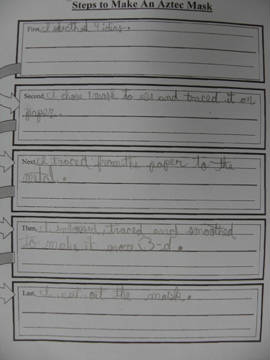 Steps to Make An Aztec Mask
First, I sketched 4 idias.
Second, I chose 1 mask to use and traced it on
paper.
Next, I traced from the paper to the
metal.
Then, I traced and smoothed
to make it more 3-d.
Last, I cut out the mask.